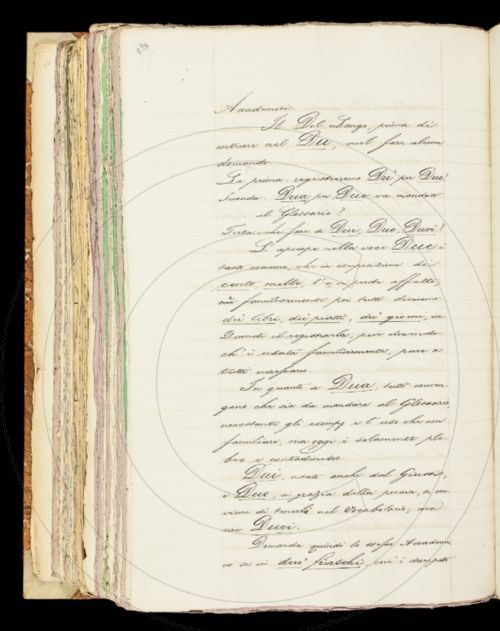 Accademici.
Il Del Lungo, prima di
entrare nel Due, vuol fare alcune
domande.
La prima: registreremo Du' per Due?
Seconda: Dua per Due va mandato
al Glossario?
Terza: che fare di Dui, Duo, Duoi?
L'apocope nella voce Due è
tanto comune, che in composizione di
cento, mille, l'e si perde affatto,
ma familiarmente poi tutti diciamo
du' libri, du' piatti, du' giorni, ec.
Quindi il registrarla, pur dicendo
ch'è usata familiarmente, pare a
tutti necessario.
In quanto a Dua, tutti conven-
gono che sia da mandare al Glossario,
nonostante gli esempi e l'uso che
familiare, ma oggi è solamente ple-
beo e contadinesco.
Dui, usato anche dal Giusti,
e Duo, a grazia della poesia, con-
viene di tenerli nel Vocabolario; ma
non Duoi.
Domanda quindi lo stesso Accademi-
co se in due fiaschi, com'è stampato